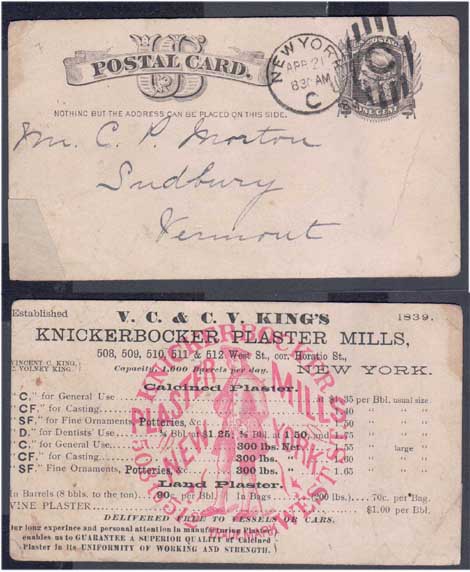 U S
POSTAL CARD.
NOTHING BUT THE ADDRESS CAN BE PLACED ON THIS SIDE.
NEW YORK
APR 21
830 AM
C
ONE CENT
Mr. C. P. Morton
Sudbury
Vermont
Established
V. C. & C. V. KING'S
1839.
KNICKERBOCKER PLASTER MILLS,
508, 509, 510, 511 & 512 West St., cor. Horatio St.,
VINCENT C. KING,
C. VOLNEY KING.
Capacity Barrels per day.
NEW YORK.
Calcined Plaster.
"C," for General Use at per Bbl. usual size
"CF," for Casting
"SF," for Fine Ornaments, Potteries, &c.
"D," for Dentists' Use Bbl or $1.25; Bbl. at 1.50, and
"C," for General Use 300 lbs. Net 1.55 " large "
"CF," for Casting 300 lbs. 1.60 " "
"SF," for Fine Ornaments, Potteries, &c. 300 lbs. 1.65 " "
Land Plaster.
In Barrels (8 bbls. to the ton) 90c. per Bbl. In Bags (200 lbs.) 70c. per Bag.
VINE PLASTER $1.00 per Bbl.
DELIVERED FREE TO VESSELS OR CARS.
Our long experience and personal attention in manufacturing Plaster
enables us to GUARANTEE A SUPERIOR QUALITY of Calcined
Plaster in its UNIFORMITY OF WORKING AND STRENGTH.
KNICKERBOCKER
PLASTER MILLS
NEW YORK
508
WEST ST
TRADE MARK